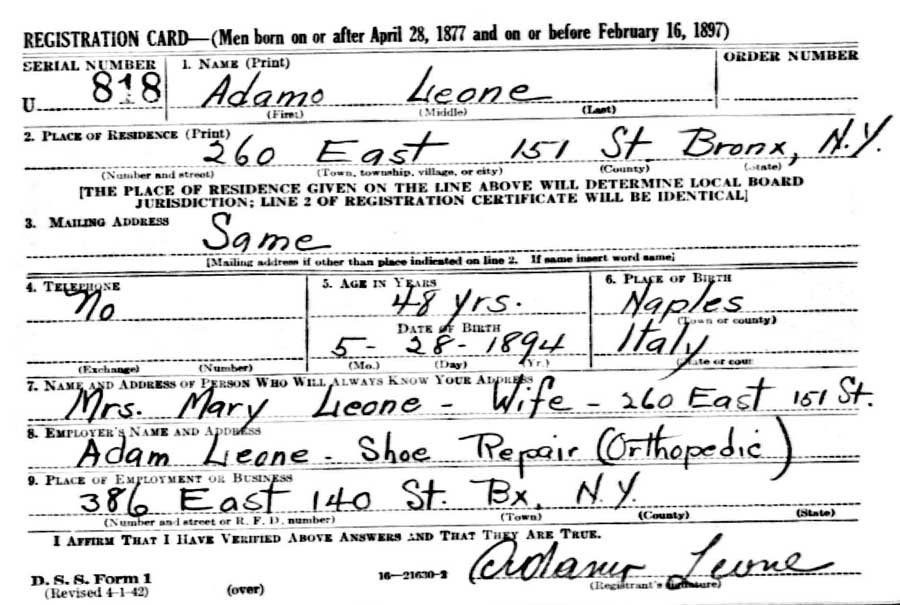 REGISTRATION CARD—(Men born on or after April 28, 1877 and on or before February 16, 1897)
SERIAL NUMBER 1. NAME (Print) ORDER NUMBER
U 818 Adamo Leone
(First) (Middle) (Last)
2. PLACE OF RESIDENCE (Print)
260 East 151 St. Bronx, N.Y.
(Number and street) (Town, township, village, or city) (County) (State)
[THE PLACE OF RESIDENCE GIVEN ON THE LINE ABOVE WILL DETERMINE LOCAL BOARD
JURISDICTION; LINE 2 OF REGISTRATION CERTIFICATE WILL BE IDENTICAL]
3. MAILING ADDRESS
Same
[Mailing address if other than place indicated on line 2. If same insert word same]
4. TELEPHONE 5. AGE IN YEARS 6. PLACE OF BIRTH
No 48 yrs. Naples
DATE OF BIRTH (Town or county)
5-28-1894 Italy
(Exchange) (Number) (Mo.) (Day) (Yr.) (State or coun
7. NAME AND ADDRESS OF PERSON WHO WILL ALWAYS KNOW YOUR ADDRESS
Mrs. Mary Leone - Wife - 260 East 151 St.
8. EMPLOYER'S NAME AND ADDRESS
Adam Leone - Shoe Repair (Orthopedic)
9. PLACE OF EMPLOYMENT OR BUSINESS
386 East 140 St. Bx, N.Y.
(Number and street or R. F. D. number) (Town) (County) (State)
I AFFIRM THAT I HAVE VERIFIED ABOVE ANSWERS AND THAT THEY ARE TRUE.
D. S. S. Form 1 16—21630-2 Adamo Leone
(Revised 4-1-42) (over) (Registrant's signature)